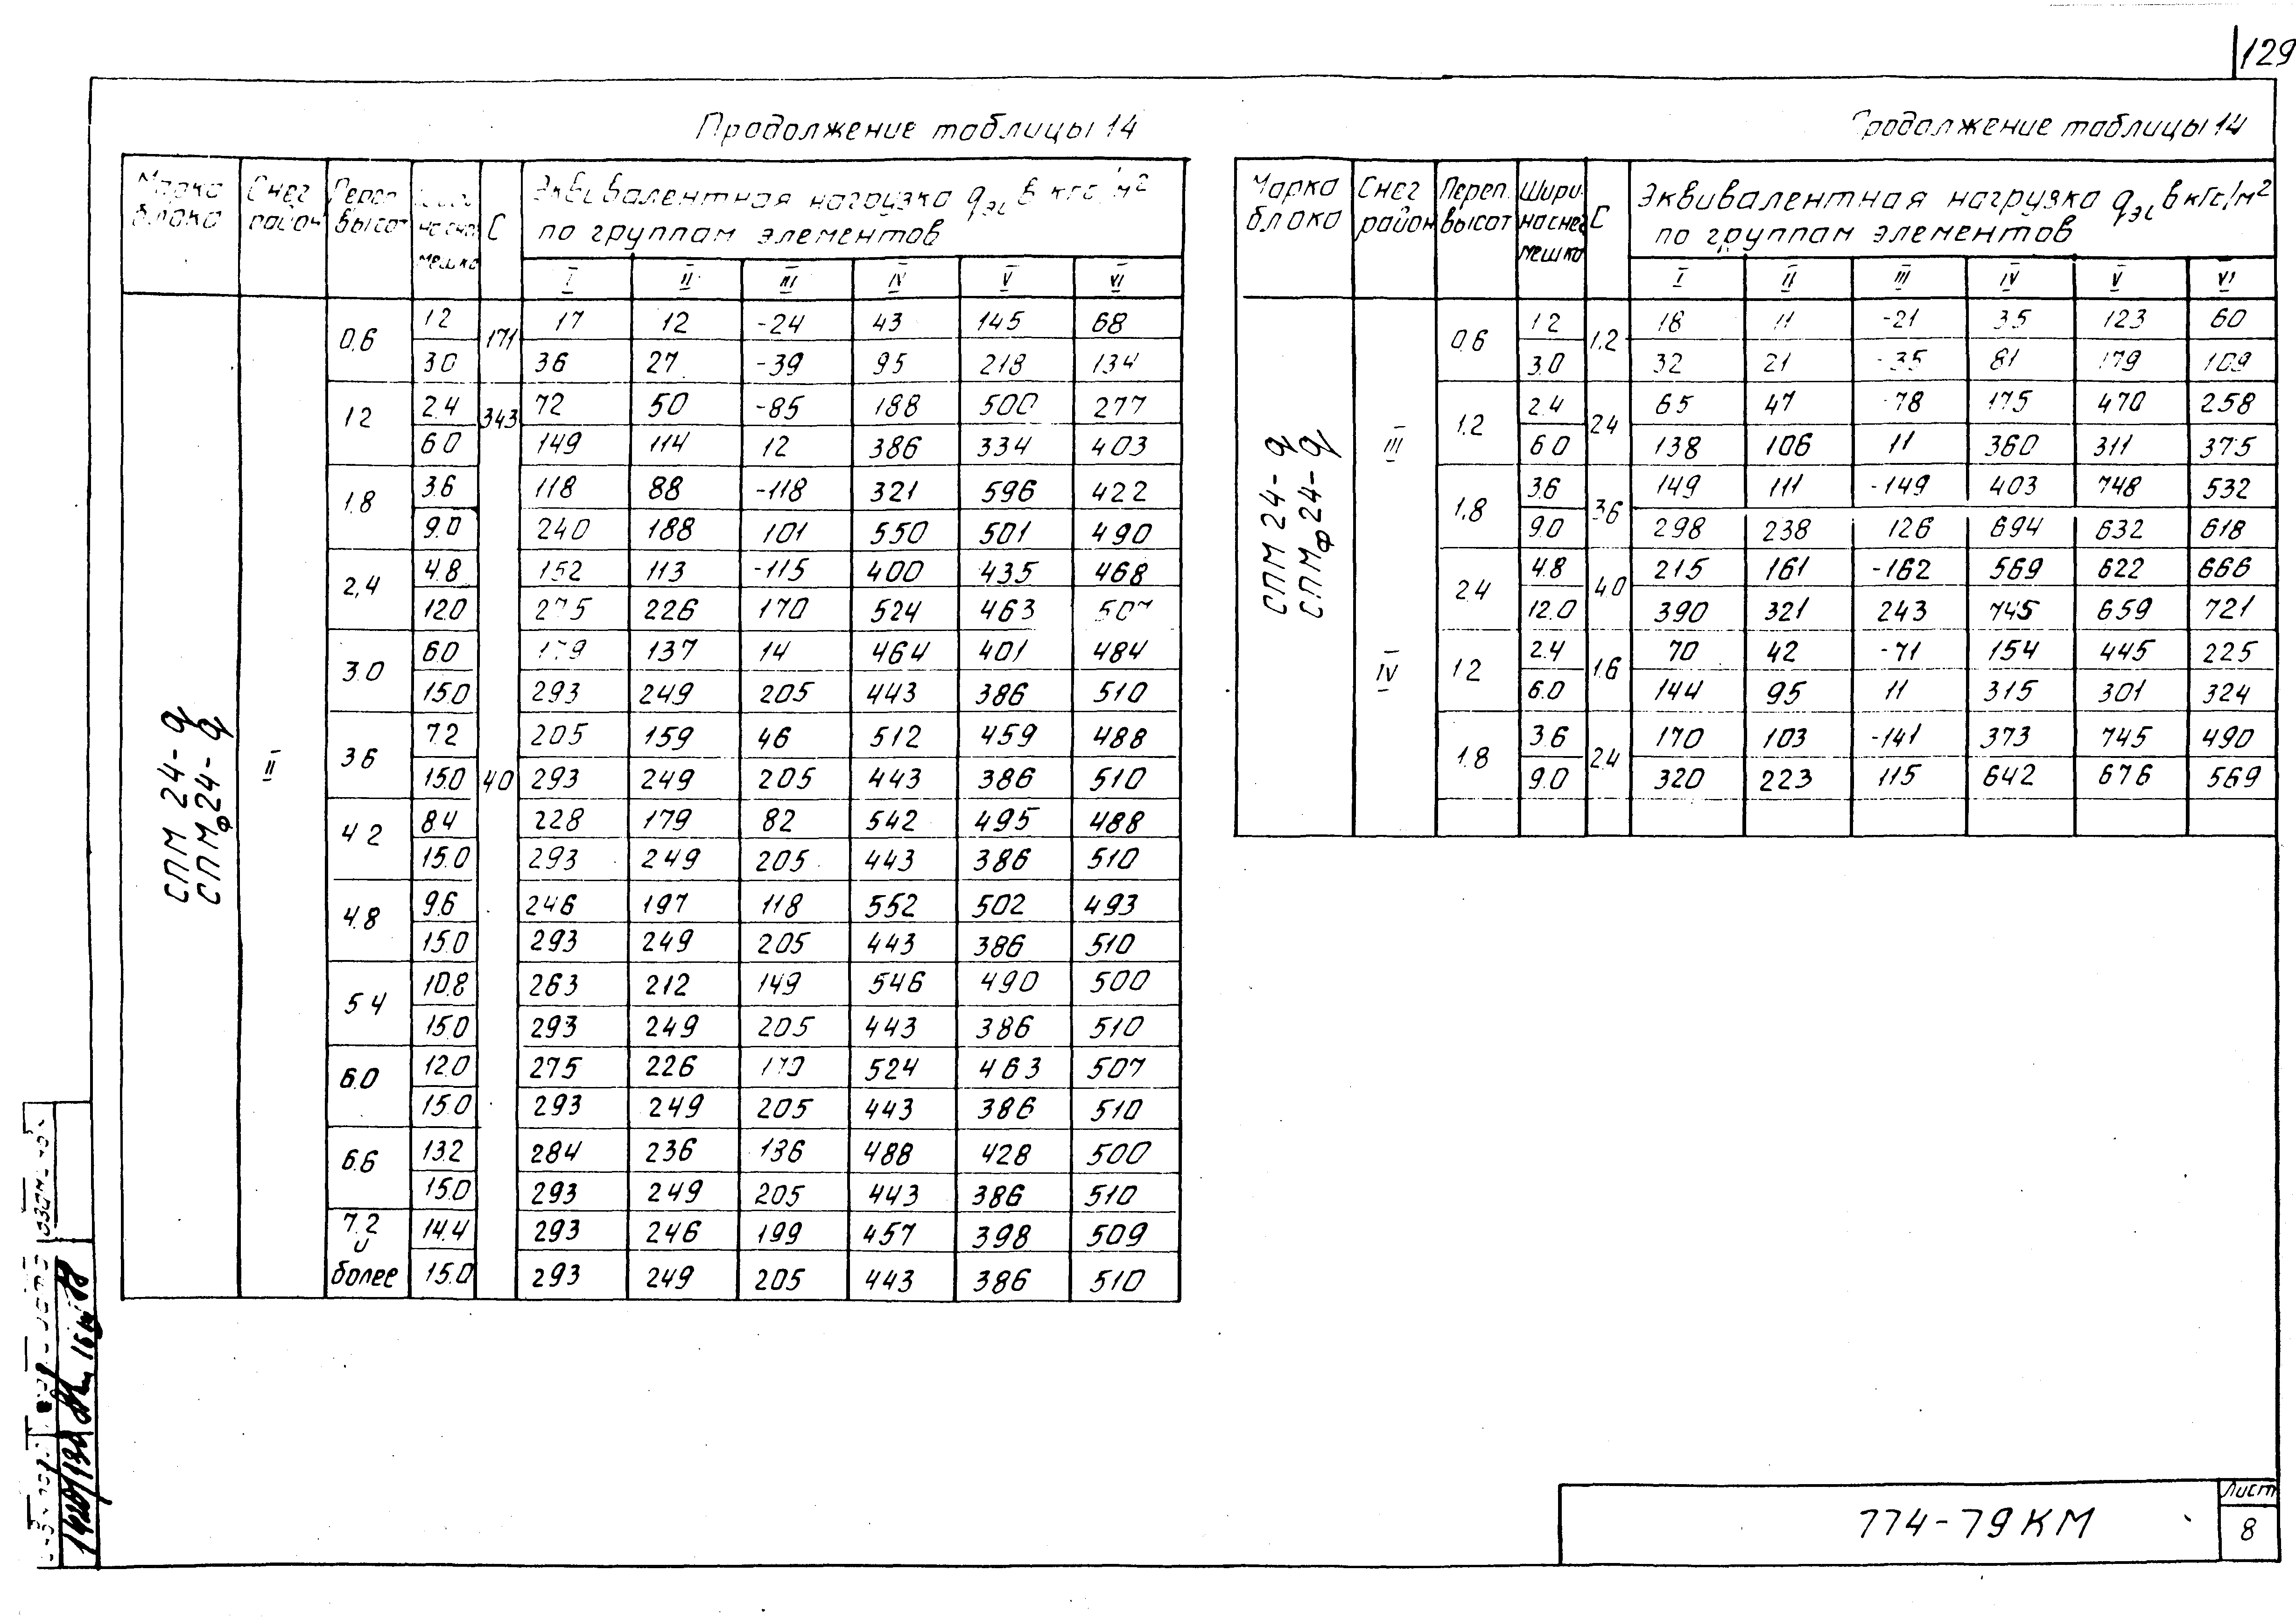 129
Продолжение таблицы 14
Марка блока | Снег район | Переп. высот | на сне мешка | С | Эквивалентная нагрузка qэк в кгс/м² по группам элементов
I | II | III | IV | V | VI
СПМ 24-q
СПМФ 24-q
II
0.6 | 1.2 | 171 | 17 | 12 | -24 | 43 | 145 | 68
3.0 | 36 | 27 | -39 | 95 | 218 | 134
1.2 | 2.4 | 343 | 72 | 50 | -85 | 188 | 500 | 277
6.0 | 149 | 114 | 12 | 386 | 334 | 403
1.8 | 3.6 | 118 | 88 | -118 | 321 | 596 | 422
9.0 | 240 | 188 | 101 | 550 | 501 | 490
2,4 | 4.8 | 152 | 113 | -115 | 400 | 435 | 468
12.0 | 275 | 226 | 170 | 524 | 463 | 507
3.0 | 6.0 | 179 | 137 | 14 | 464 | 401 | 484
15.0 | 293 | 249 | 205 | 443 | 386 | 510
3.6 | 7.2 | 205 | 159 | 46 | 512 | 459 | 488
15.0 | 40 | 293 | 249 | 205 | 443 | 386 | 510
4.2 | 8.4 | 228 | 179 | 82 | 542 | 495 | 488
15.0 | 293 | 249 | 205 | 443 | 386 | 510
4.8 | 9.6 | 246 | 197 | 118 | 552 | 502 | 493
15.0 | 293 | 249 | 205 | 443 | 386 | 510
5.4 | 10.8 | 263 | 212 | 149 | 546 | 490 | 500
15.0 | 293 | 249 | 205 | 443 | 386 | 510
6.0 | 12.0 | 275 | 226 | 170 | 524 | 463 | 507
15.0 | 293 | 249 | 205 | 443 | 386 | 510
6.6 | 13.2 | 284 | 236 | 186 | 488 | 428 | 500
15.0 | 293 | 249 | 205 | 443 | 386 | 510
7.2 и более | 14.4 | 293 | 246 | 199 | 457 | 398 | 509
15.0 | 293 | 249 | 205 | 443 | 386 | 510
Продолжение таблицы 14
Марка блока | Снег район | Переп. высот | Шири на снег мешка | С | Эквивалентная нагрузка qэк в кгс/м² по группам элементов
I | II | III | IV | V | VI
СПМ 24-q
СПМФ 24-q
III
0.6 | 1.2 | 1.2 | 18 | 11 | -21 | 35 | 123 | 60
3.0 | 32 | 21 | -35 | 81 | 179 | 109
1.2 | 2.4 | 2.4 | 65 | 47 | -78 | 175 | 470 | 258
6.0 | 138 | 106 | 11 | 360 | 311 | 375
1.8 | 3.6 | 3.6 | 149 | 111 | -149 | 403 | 748 | 532
9.0 | 298 | 238 | 126 | 694 | 632 | 618
2.4 | 4.8 | 4.0 | 215 | 161 | -162 | 569 | 622 | 666
12.0 | 390 | 321 | 243 | 745 | 659 | 721
IV
1.2 | 2.4 | 1.6 | 70 | 42 | -71 | 154 | 445 | 225
6.0 | 144 | 95 | 11 | 315 | 301 | 324
1.8 | 3.6 | 2.4 | 170 | 103 | -141 | 373 | 745 | 490
9.0 | 320 | 223 | 115 | 642 | 676 | 569
774-79КМ
Лист
8